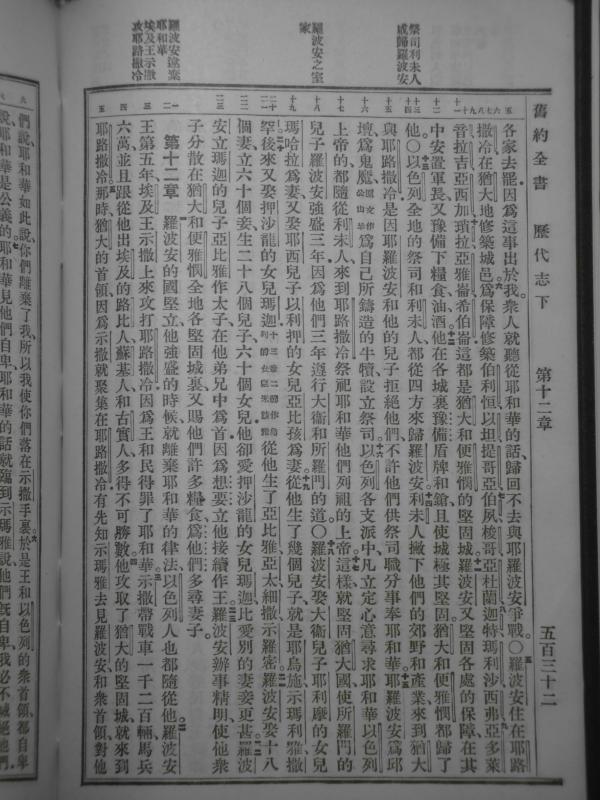 舊約全書 歷代志下 第十二章 五百三十二
祭司利未人
咸歸羅波安
羅波安之室
家
羅波安違棄
耶和華
埃及王示撒
攻耶路撒冷
各家去罷因爲這事出於我衆人就聽從耶和華的話歸回不去與耶羅波安爭戰○羅波安住在耶路
撒冷在猶大地修築城邑爲保障修築伯利恒以坦提哥亞伯夙梭哥亞杜蘭迦特瑪利沙西弗亞多萊
音拉吉亞西加瑣拉亞雅崙希伯崙這都是猶大和便雅憫的堅固城羅波安又堅固各處的保障在其
中安置軍長又豫備下糧食油酒他在各城裏豫備盾牌和鎗且使城極其堅固猶大和便雅憫都歸了
他○以色列全地的祭司和利未人都從四方來歸羅波安利未人撇下他們的郊野和產業來到猶大
與耶路撒冷是因耶羅波安和他的兒子拒絕他們不許他們供祭司職分事奉耶和華耶羅波安爲邱
壇爲鬼魔爲自己所鑄造的牛犢設立祭司以色列各支派中凡立定心意尋求耶和華以色列
上帝的都隨從利未人來到耶路撒冷祭祀耶和華他們列祖的上帝這樣就堅固猶大國使所羅門的
兒子羅波安強盛三年因爲他們三年遵行大衞和所羅門的道○羅波安娶大衞兒子耶利摩的女兒
瑪哈拉爲妻又娶耶西兒子以利押的女兒亞比孩爲妻從他生了幾個兒子就是耶烏施示瑪利雅撒
罕後來又娶押沙龍的女兒瑪迦從他生了亞比雅亞太細撒示羅密羅波安娶十八
個妻立六十個妾生二十八個兒子六十個女兒他卻愛押沙龍的女兒瑪迦比愛別的妻妾更甚羅波
安立瑪迦的兒子亞比雅作太子在他弟兄中爲首因爲想要立他接續作王羅波安辦事精明使他衆
子分散在猶大和便雅憫全地各堅固城裏又賜他們許多糧食爲他們多尋妻子
第十二章 羅波安的國堅立他強盛的時候就離棄耶和華的律法以色列人也都隨從他羅波安
王第五年埃及王示撒上來攻打耶路撒冷因爲王和民得罪了耶和華示撒帶戰車一千二百輛馬兵
六萬並且跟從他出埃及的路比人蘇基人和古實人多得不可勝數他攻取了猶大的堅固城就來到
耶路撒冷那時猶大的首領因爲示撒就聚集在耶路撒冷有先知示瑪雅去見羅波安和衆首領對他
們說耶和華如此說你們離棄了我所以我使你們落在示撒手裏於是王和以色列的衆首領都自卑
說耶和華是公義的耶和華見他們自卑耶和華的話就臨到示瑪雅說他們旣自卑我必不滅絕他們